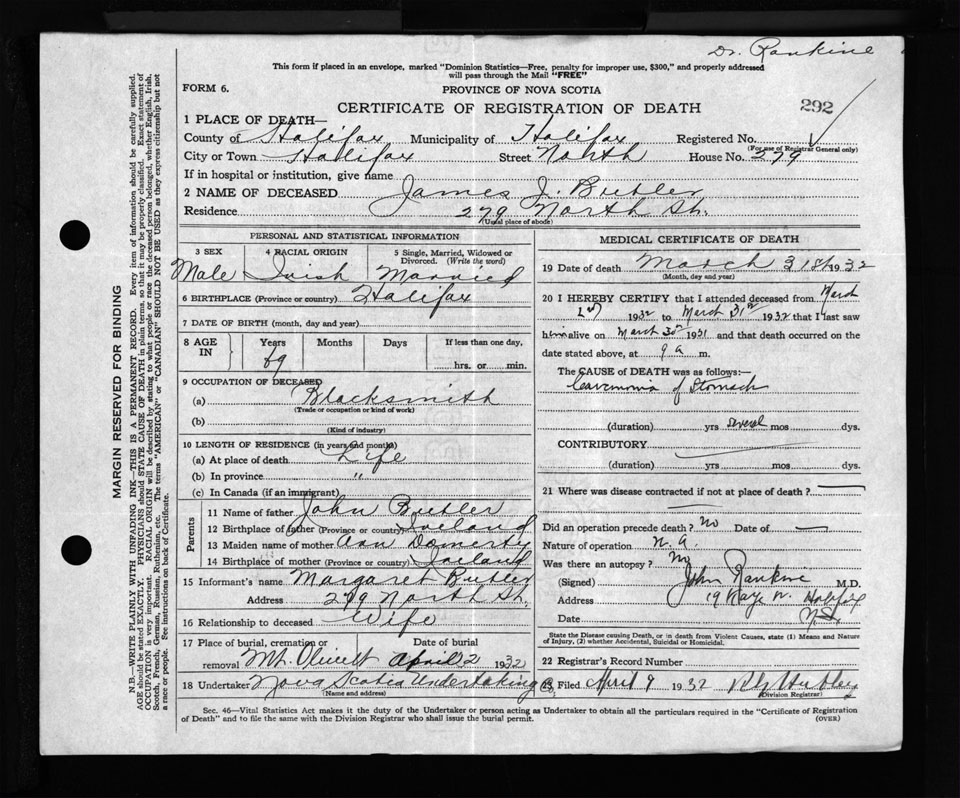 Dr. Rankine
This form if placed in an envelope, marked "Dominion Statistics—Free, penalty for improper use, $300," and properly addressed
will pass through the Mail "FREE"
FORM 6.
PROVINCE OF NOVA SCOTIA
CERTIFICATE OF REGISTRATION OF DEATH
292
1 PLACE OF DEATH—
County of Halifax Municipality of Halifax Registered No.
(For use of Registrar General only)
City or Town Halifax Street North House No. 279
If in hospital or institution, give name
2 NAME OF DECEASED James J. Butler
Residence 279 North St.
(Usual place of abode)
PERSONAL AND STATISTICAL INFORMATION
3 SEX 4 RACIAL ORIGIN 5 Single, Married, Widowed or Divorced. (Write the word)
Male Irish Married
6 BIRTHPLACE (Province or country) Halifax
7 DATE OF BIRTH (month, day and year)
8 AGE IN Years Months Days If less than one day,
69 hrs. or min.
9 OCCUPATION OF DECEASED
(a) Blacksmith
(Trade or occupation or kind of work)
(b)
(Kind of industry)
10 LENGTH OF RESIDENCE (in years and months)
(a) At place of death Life
(b) In province "
(c) In Canada (if an immigrant)
Parents
11 Name of father John Butler
12 Birthplace of father (Province or country) Ireland
13 Maiden name of mother Ann
14 Birthplace of mother (Province or country) Ireland
15 Informant's name Margaret Butler
Address 279 North St.
16 Relationship to deceased Wife
17 Place of burial, cremation or removal Mt. Olivett Date of burial April 2 1932
18 Undertaker Nova Scotia Undertaking Co
(Name and address)
MEDICAL CERTIFICATE OF DEATH
19 Date of death March 31st 1932
(Month, day and year)
20 I HEREBY CERTIFY that I attended deceased from March
1932 to March 31st 1932 that I last saw
him alive on March 30th 1931 and that death occurred on the
date stated above, at 9 a m.
The CAUSE of DEATH was as follows:—
Carcinoma of Stomach
(duration) yrs several mos dys.
CONTRIBUTORY
(duration) yrs mos dys.
21 Where was disease contracted if not at place of death?
Did an operation precede death? No Date of
Nature of operation N. A.
Was there an autopsy? No
(Signed) John Rankine M.D.
Address Halifax
Date N.S.
State the Disease causing Death, or in death from Violent Causes, state (1) Means and Nature
of Injury, (2) whether Accidental, Suicidal or Homicidal.
22 Registrar's Record Number
Filed April 9 1932
(Division Registrar)
Sec. 46—Vital Statistics Act makes it the duty of the Undertaker or person acting as Undertaker to obtain all the particulars required in the "Certificate of Registration
of Death" and to file the same with the Division Registrar who shall issue the burial permit.
(OVER)
MARGIN RESERVED FOR BINDING
N.B.—WRITE PLAINLY WITH UNFADING INK—THIS IS A PERMANENT RECORD. Every item of information should be carefully supplied.
AGE should be stated EXACTLY. PHYSICIANS should STATE CAUSE OF DEATH in plain terms, so that it may be properly classified. Exact statement of
OCCUPATION is very important. RACIAL ORIGIN will be described by stating to what people or race the deceased person belonged, whether English, Irish,
Scotch, French, German, Russian, Ruthenian, etc. The terms "AMERICAN" or "CANADIAN" SHOULD NOT BE USED as they express citizenship but not
a race or people. See instructions on back of Certificate.